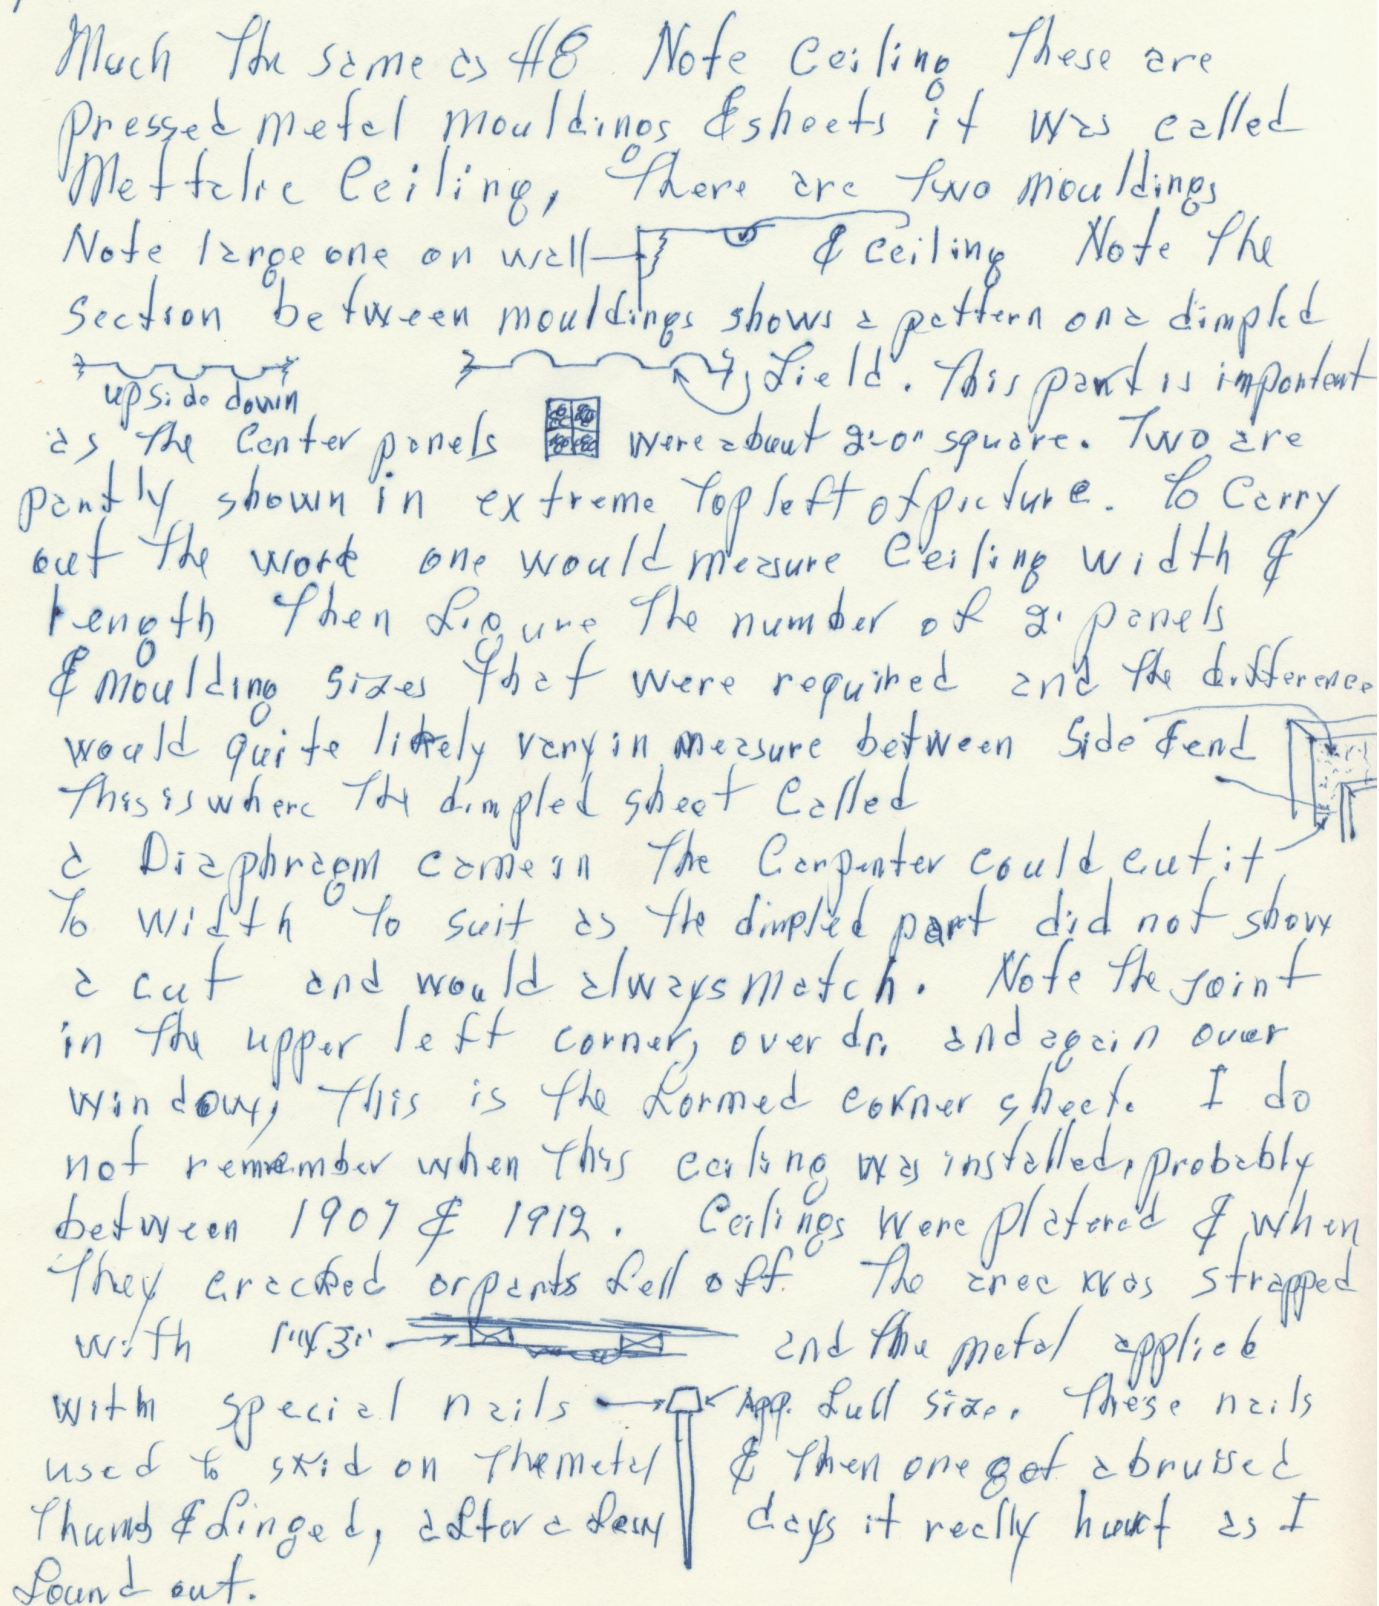 Much The same as #8 Note Ceiling These are
pressed metal mouldings & sheets it was called
Mettalic Ceiling, There are Two mouldings
Note large one on wall & Ceiling Note The
section between mouldings shows a pattern on a dimpled
field. This part is important
up side down
as The Center panels were about 2'-0" square. Two are
partly shown in extreme Top left of picture. To Carry
out The work one would measure Ceiling width &
Length Then figure The number of 2' panels
& moulding sizes That were required and The difference
would quite likely vary in measure between Side & end
This is where The dimpled sheet Called
a Diaphragm came in The Carpenter could cut it
To width To suit as The dimpled part did not show
a cut and would always match. Note The joint
in The upper left corner, over dr. and again over
window, This is The formed corner sheet. I do
not remember when This ceiling was installed, probably
between 1907 & 1912. Ceilings were platered & when
They cracked or parts fell off. The area was strapped
with 1"x3" and The metal applied
with special nails App. full size. These nails
used to skid on The metal & Then one got a bruised
Thumb & finged, after a few days it really hurt as I
found out.